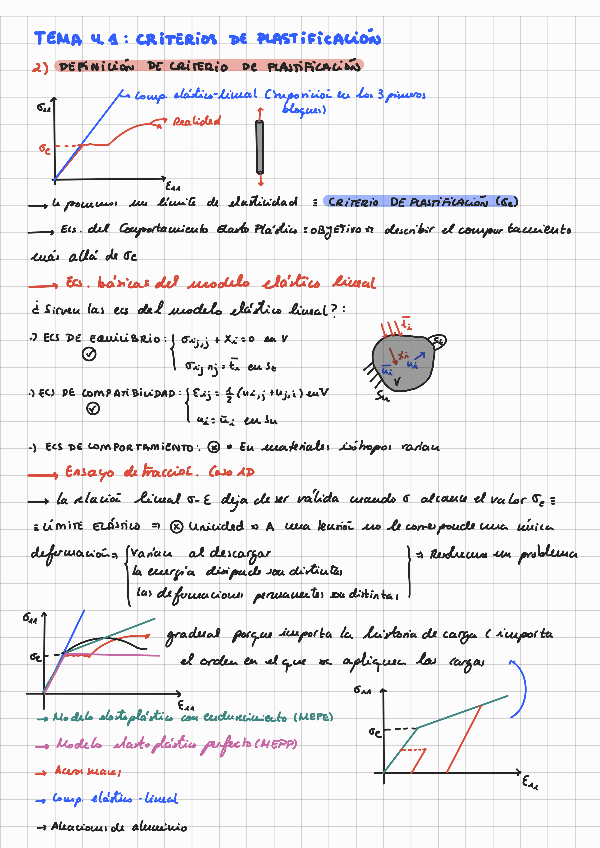 TEMA 4.1: CRITERIOS DE PLASTIFICACIÓN
2) DEFINICIÓN DE CRITERIO DE PLASTIFICACIÓN
σ11
Comp. elástico-lineal (Suposición en los 3 primeros
bloques)
Realidad
σe
ε11
→ le ponemos un límite de elasticidad ≡ CRITERIO DE PLASTIFICACIÓN (σe)
→ Ecs. del Comportamiento Elasto Plástico: OBJETIVO describir el comportamiento
más allá de σe
→ Ecs. básicas del modelo elástico lineal
¿Sirven las ecs del modelo elástico lineal?:
·) ECS DE EQUILIBRIO: { σij,j + Xi = 0 en V
σij nj = t̄i en St
t̄i
St
Xi
ūi
ui
V
Su
·) ECS DE COMPATIBILIDAD: { εij = 1/2 (ui,j + uj,i) en V
ui = ūi en Su
·) ECS DE COMPORTAMIENTO: ⊗ En materiales isótropos varían
→ Ensayo de tracción. Caso 1D
→ la relación lineal σ-ε deja de ser válida cuando σ alcance el valor σe ≡
≡ LÍMITE ELÁSTICO ⇒ ⊗ Unicidad ⇒ A una tensión no le corresponde una única
deformación ⇒ { Varían al descargar
la energía disipada son distintas
las deformaciones permanentes son distintas
⇒ Resolvemos un problema
σ11
σe
ε11
gradual porque importa la historia de carga (importa
el orden en el que se apliquen las cargas
σ11
σe
ε11
→ Modelo elastoplástico con endurecimiento (MEPE)
→ Modelo elasto plástico perfecto (MEPP)
→ Comp. elástico-lineal
→ Aleaciones de aluminio